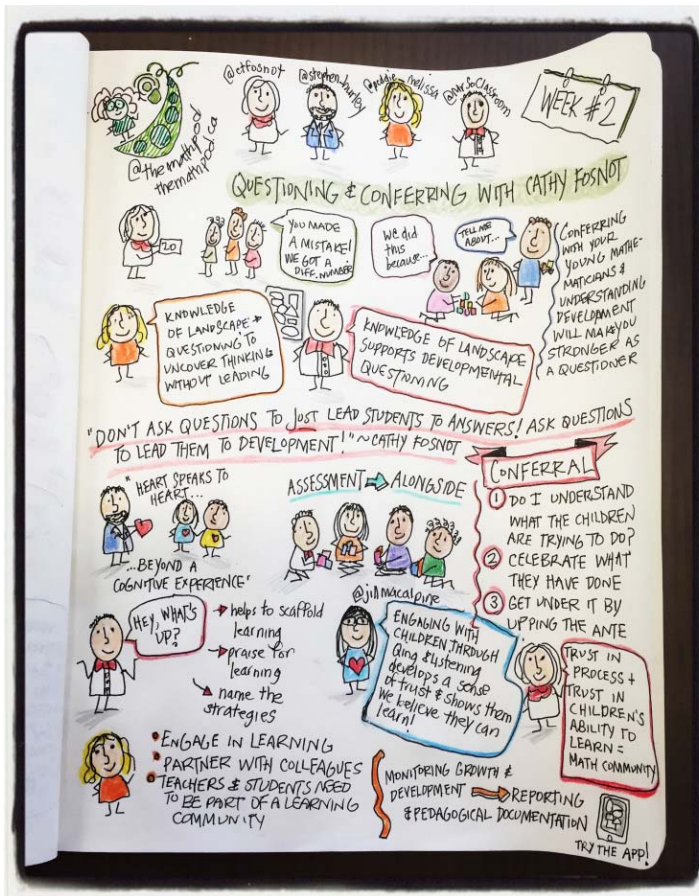 @ctfosnot
@stephen_hurley
@peddie_melissa
@MrSoClassroom
@themathpod
themathpod.ca
WEEK #2
QUESTIONING & CONFERRING WITH CATHY FOSNOT
20
YOU MADE
A MISTAKE!
WE GOT A
DIFF. NUMBER
We did
this
because...
TELL ME
ABOUT...
CONFERRING
WITH YOUR
YOUNG MATHE-
MATICIANS &
UNDERSTANDING
DEVELOPMENT
WILL MAKE YOU
STRONGER AS
A QUESTIONER
KNOWLEDGE
OF LANDSCAPE +
QUESTIONING TO
UNCOVER THINKING
WITHOUT LEADING
KNOWLEDGE OF LANDSCAPE
SUPPORTS DEVELOPMENTAL
QUESTIONING
"DON'T ASK QUESTIONS TO JUST LEAD STUDENTS TO ANSWERS! ASK QUESTIONS
TO LEAD THEM TO DEVELOPMENT!" ~ CATHY FOSNOT
"HEART SPEAKS TO
HEART...
...BEYOND A
COGNITIVE EXPERIENCE"
ASSESSMENT ⇒ ALONGSIDE
CONFERRAL
① DO I UNDERSTAND
WHAT THE CHILDREN
ARE TRYING TO DO?
② CELEBRATE WHAT
THEY HAVE DONE
③ GET UNDER IT BY
UPPING THE ANTE
HEY, WHAT'S
UP?
→ helps to scaffold
learning
→ praise for
learning
→ name the
strategies
@jillmacalpine
ENGAGING WITH
CHILDREN THROUGH
Qing & Listening
develops a sense
of trust & shows them
we believe they can
learn!
TRUST IN
PROCESS +
TRUST IN
CHILDREN'S
ABILITY TO
LEARN =
MATH COMMUNITY
• ENGAGE IN LEARNING
• PARTNER WITH COLLEAGUES
• TEACHERS & STUDENTS NEED
TO BE PART OF A LEARNING
COMMUNITY
MONITORING GROWTH &
DEVELOPMENT ⇒ REPORTING
& PEDAGOGICAL DOCUMENTATION
TRY THE APP!